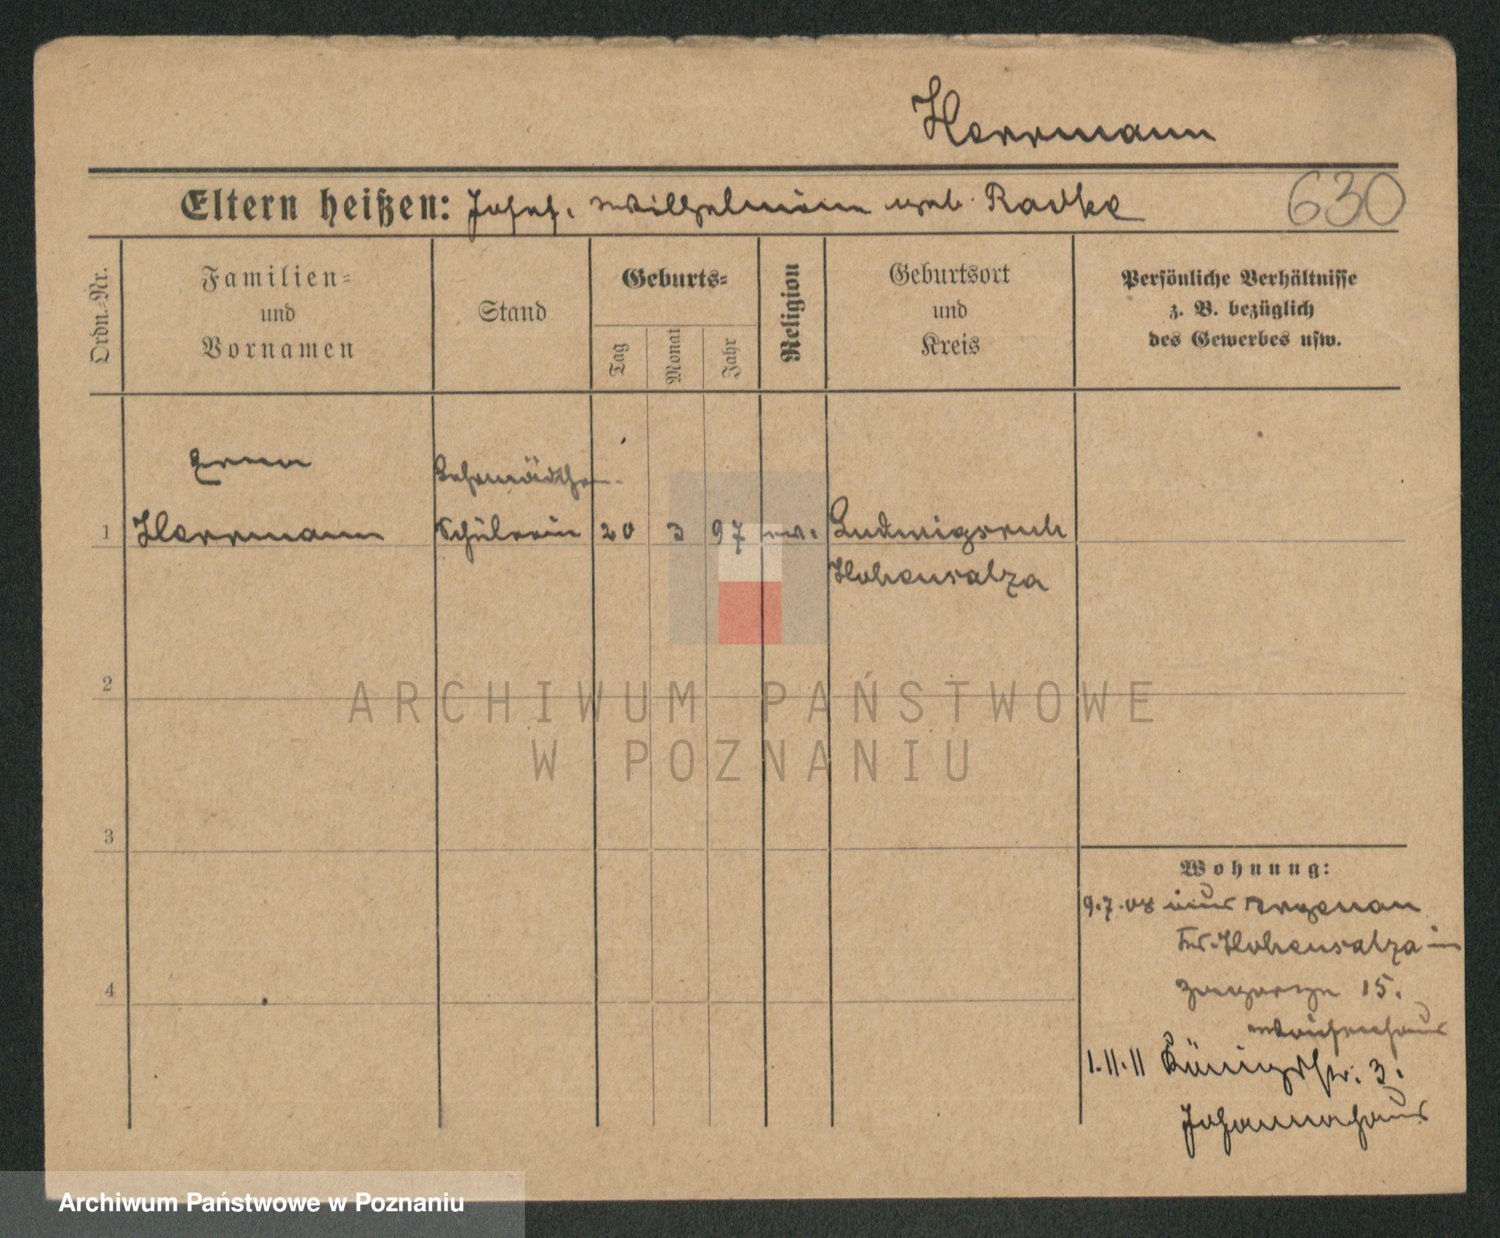 Herrmann
Eltern heißen: Josef. Wilhelmine geb. Radke
630
Ordn.-Nr.
Familien-
und
Vornamen
Stand
Geburts-
Tag
Monat
Jahr
Religion
Geburtsort
und
Kreis
Persönliche Verhältnisse
z. B. bezüglich
des Gewerbes usw.
1
Herrmann
Schülerin
20
3
97
ev.
Ludwigsruh
Hohensalza
2
3
4
ARCHIWUM PAŃSTWOWE
W POZNANIU
Wohnung:
9.7.08 aus Argenau
Hohensalza in
15.
Waisenhaus
1.11.11 Königstr. 3.
Johannahaus
Archiwum Państwowe w Poznaniu